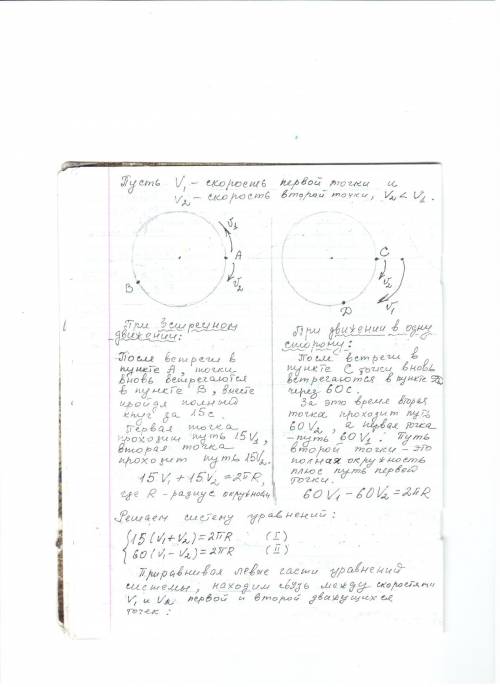 Пусть V₁ - скорость первой точки и
V₂ - скорость второй точки, V₂ < V₁.
V₁
A
V₂
B
C
V₂
V₁
D
При встречном
движении:
После встречи в
пункте А, точки
вновь встречаются
в пункте В, вместе
пройдя полный
круг за 15с.
Первая точка
проходит путь 15V₁,
вторая точка
проходит путь 15V₂.
15V₁ + 15V₂ = 2πR,
где R - радиус окружности
При движении в одну
сторону:
После встречи в
пункте С точки вновь
встретесются в пункте D
через 60с.
За это время вторая
точка проходит путь
60V₂, а первая точка
- путь 60V₁. Путь
второй точки - это
полная окружность
плюс путь первой
точки.
60V₁ - 60V₂ = 2πR
Решаем систему уравнений:
{15(V₁+V₂)=2πR (I)
{60(V₁-V₂)=2πR (II)
Приравнивая левые части уравнений
системы, находим связь между скоростями
V₁ и V₂ первой и второй движущихся
точек: